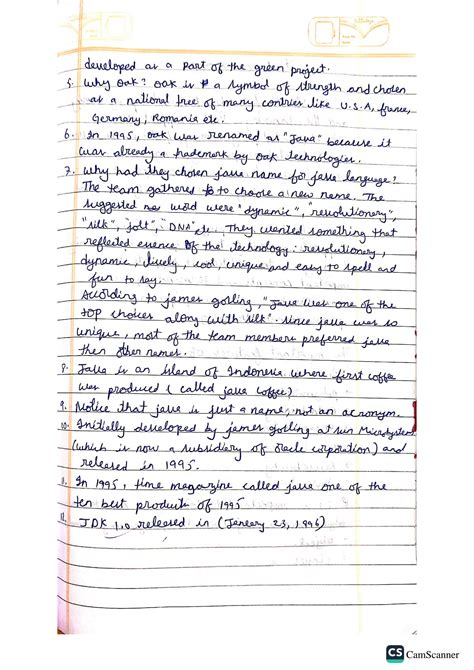 developed as a part of the green project.
5. Why oak? Oak is a symbol of strength and chosen
as a national tree of many contries like U.S.A, france,
Germany, Romania etc.
6. In 1995, oak was renamed as "Java" because it
was already a trademark by oak technologies.
7. Why had they chosen java name for java language?
The team gathers to choose a new name. The
suggested word were "dynamic", "revolutionary",
"silk", jolt", "DNA" etc. They wanted something that
reflected esence of the technology: revolutionary,
dynamic, lively, cool, unique and easy to spell and
fun to say.
According to james gosling, "Java was one of the
top choices along with silk". since java was so
unique, most of the team members preferred java
then other names.
8. Java is an island of Indonesia where first coffe
was produced (called java coffee)
9. Notice that java is just a name, not an acronym.
10. Initially developed by james gosling at sun Microsystem
(which is now a subsidiary of oracle corporation) and
released in 1995.
11. In 1995, time magazine called java one of the
ten best products of 1995
12. JDK 1.0 released in (January 23, 1996)
CS CamScanner